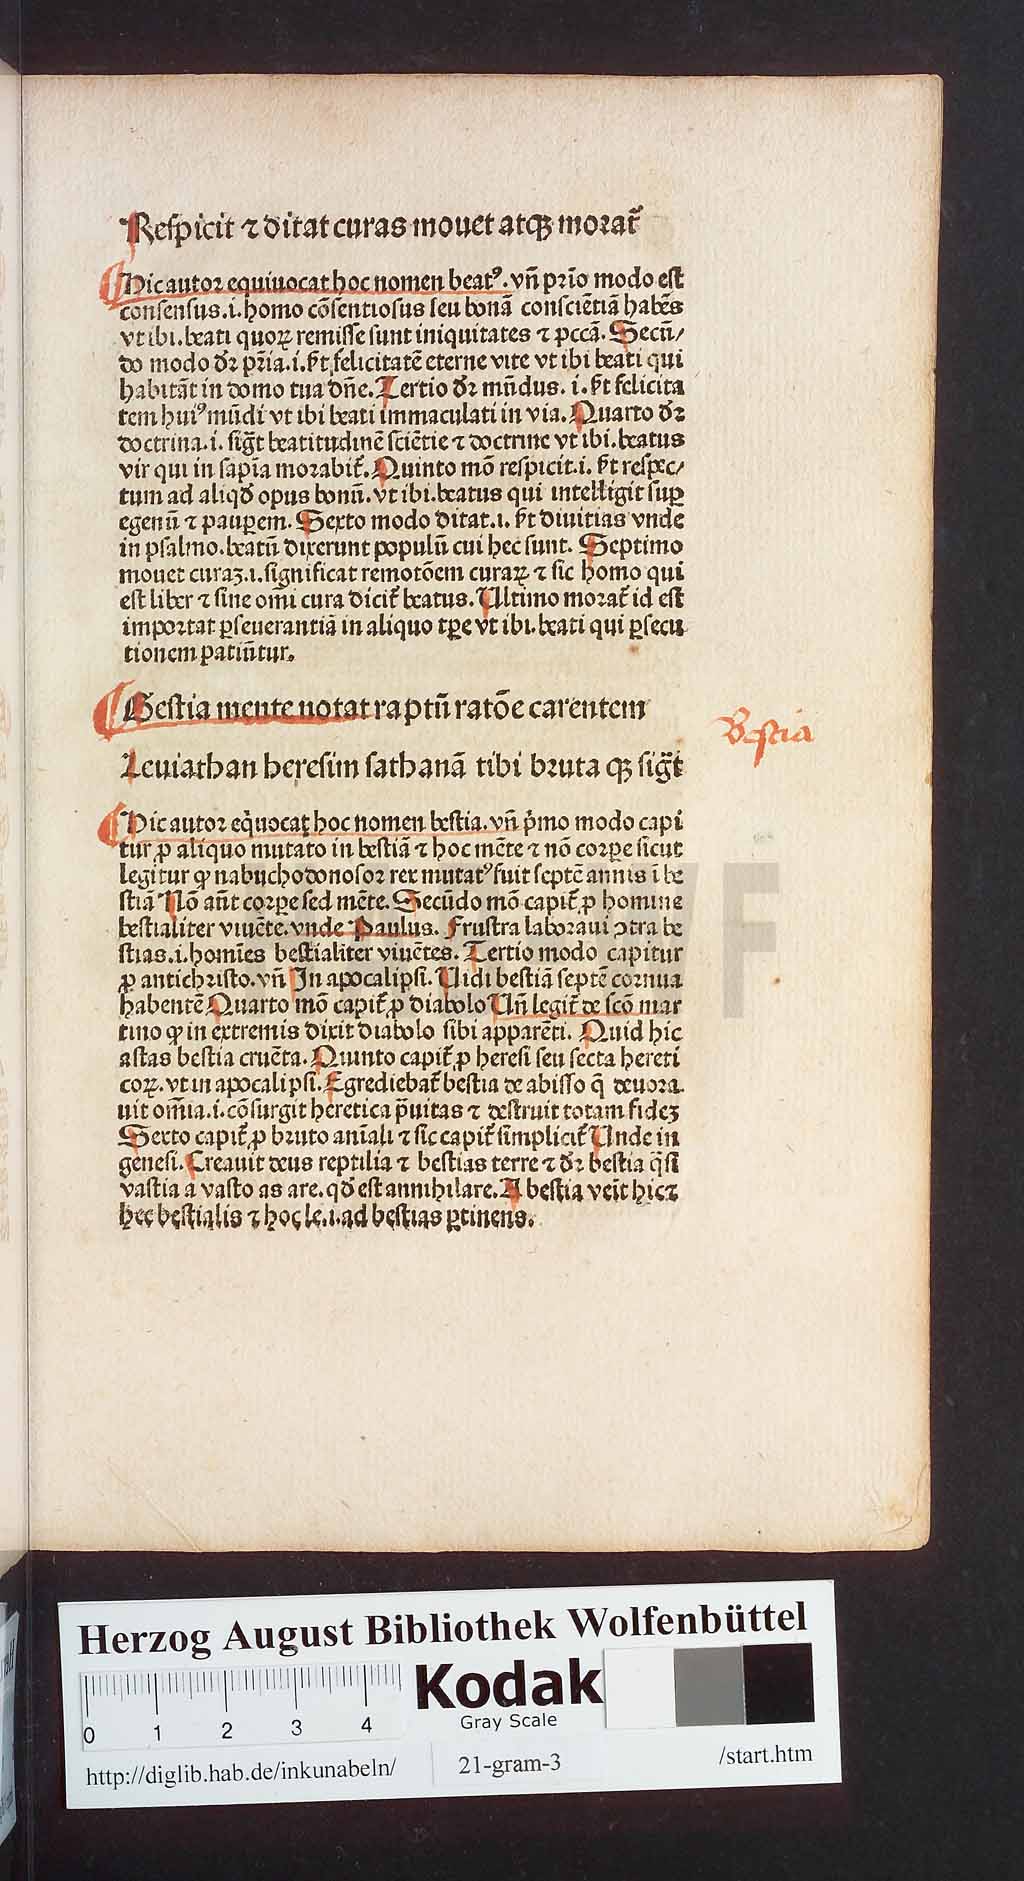 Respicit ⁊ ditat curas mouet atqꝫ morat᷑
Hic autor equiuocat hoc nomen beatꝰ. vn̄ prīo modo est
consensus.i.homo cōsentiosus seu bonā consciētiā habēs
vt ibi.beati quoꝝ remisse sunt iniquitates ⁊ pccā. Secū/
do modo dr̄ pr̄ia.i.ſꝫt felicitatē eterne vite vt ibi beati qui
habitāt in domo tua dn̄e. Tertio dr̄ mūdus. i. felicita
tem huiꝰ mūdi vt ibi beati immaculati in via. Quarto dr̄
doctrina.i. sigt̄ beatitudinē sciētie ⁊ doctrine vt ibi.beatus
vir qui in sapīa morabit᷑. Quinto mō respicit.i. respec/
tum ad aliqd̄ opus bonū. vt ibi.beatus qui intelligit suꝑ
egenū ⁊ pauꝑem. Sexto modo ditat.i. diuitias vnde
in psalmo.beatū dixerunt populū cui hec sunt. Septimo
mouet curaꝫ.i.significat remotōem curaꝝ ⁊ sic homo qui
est liber ⁊ sine om̄i cura dicit᷑ beatus. Ultimo morat᷑ id est
importat ꝑseuerantiā in aliquo tꝑe vt ibi.beati qui ꝑsecu
tionem patiūtur.
Bestia mente notat raptū ratōe carentem
Bestia
Leuiathan heresim sathanā tibi bruta qꝫ sigt̄
Hic autor eq̇uocat hoc nomen bestia. vn̄ p̄mo modo capi
tur ꝓ aliquo mutato in bestiā ⁊ hoc mēte ⁊ nō corꝑe sicut
legitur ꝙ nabuchodonosor rex mutatꝰ fuit septē annis ī be
stiā Nō aūt corꝑe sed mēte. Secūdo mō capit᷑ ꝓ homine
bestialiter viuēte. vnde Paulus. Frustra laboraui ꝯtra be
stias.i.homīes bestialiter viuētes. Tertio modo capitur
ꝓ antichristo. vn̄ In apocalipsi. Uidi bestiā septē cornua
habentē Quarto mō capit᷑ ꝓ diabolo Un̄ legit᷑ de scō mar
tino ꝙ in extremis dixit diabolo sibi apparēti. Quid hic
astas bestia cruēta. Quinto capit᷑ ꝓ heresi seu secta hereti
coꝝ. vt in apocalipsi. Egrediebat᷑ bestia de abisso q̄ deuora
uit om̄ia.i.cōsurgit heretica p̄uitas ⁊ destruit totam fideꝫ
Sexto capit᷑ ꝓ bruto anīali ⁊ sic capit᷑ simplicit᷑ Unde in
genesi. Creauit deus reptilia ⁊ bestias terre ⁊ dr̄ bestia q̄si
vastia a vasto as are. qd̄ est annihilare. A bestia veīt hic ⁊
hec bestialis ⁊ hoc le.i.ad bestias ꝑtinens.
Herzog August Bibliothek Wolfenbüttel
0 1 2 3 4
Kodak
Gray Scale
http://diglib.hab.de/inkunabeln/ 21-gram-3 /start.htm